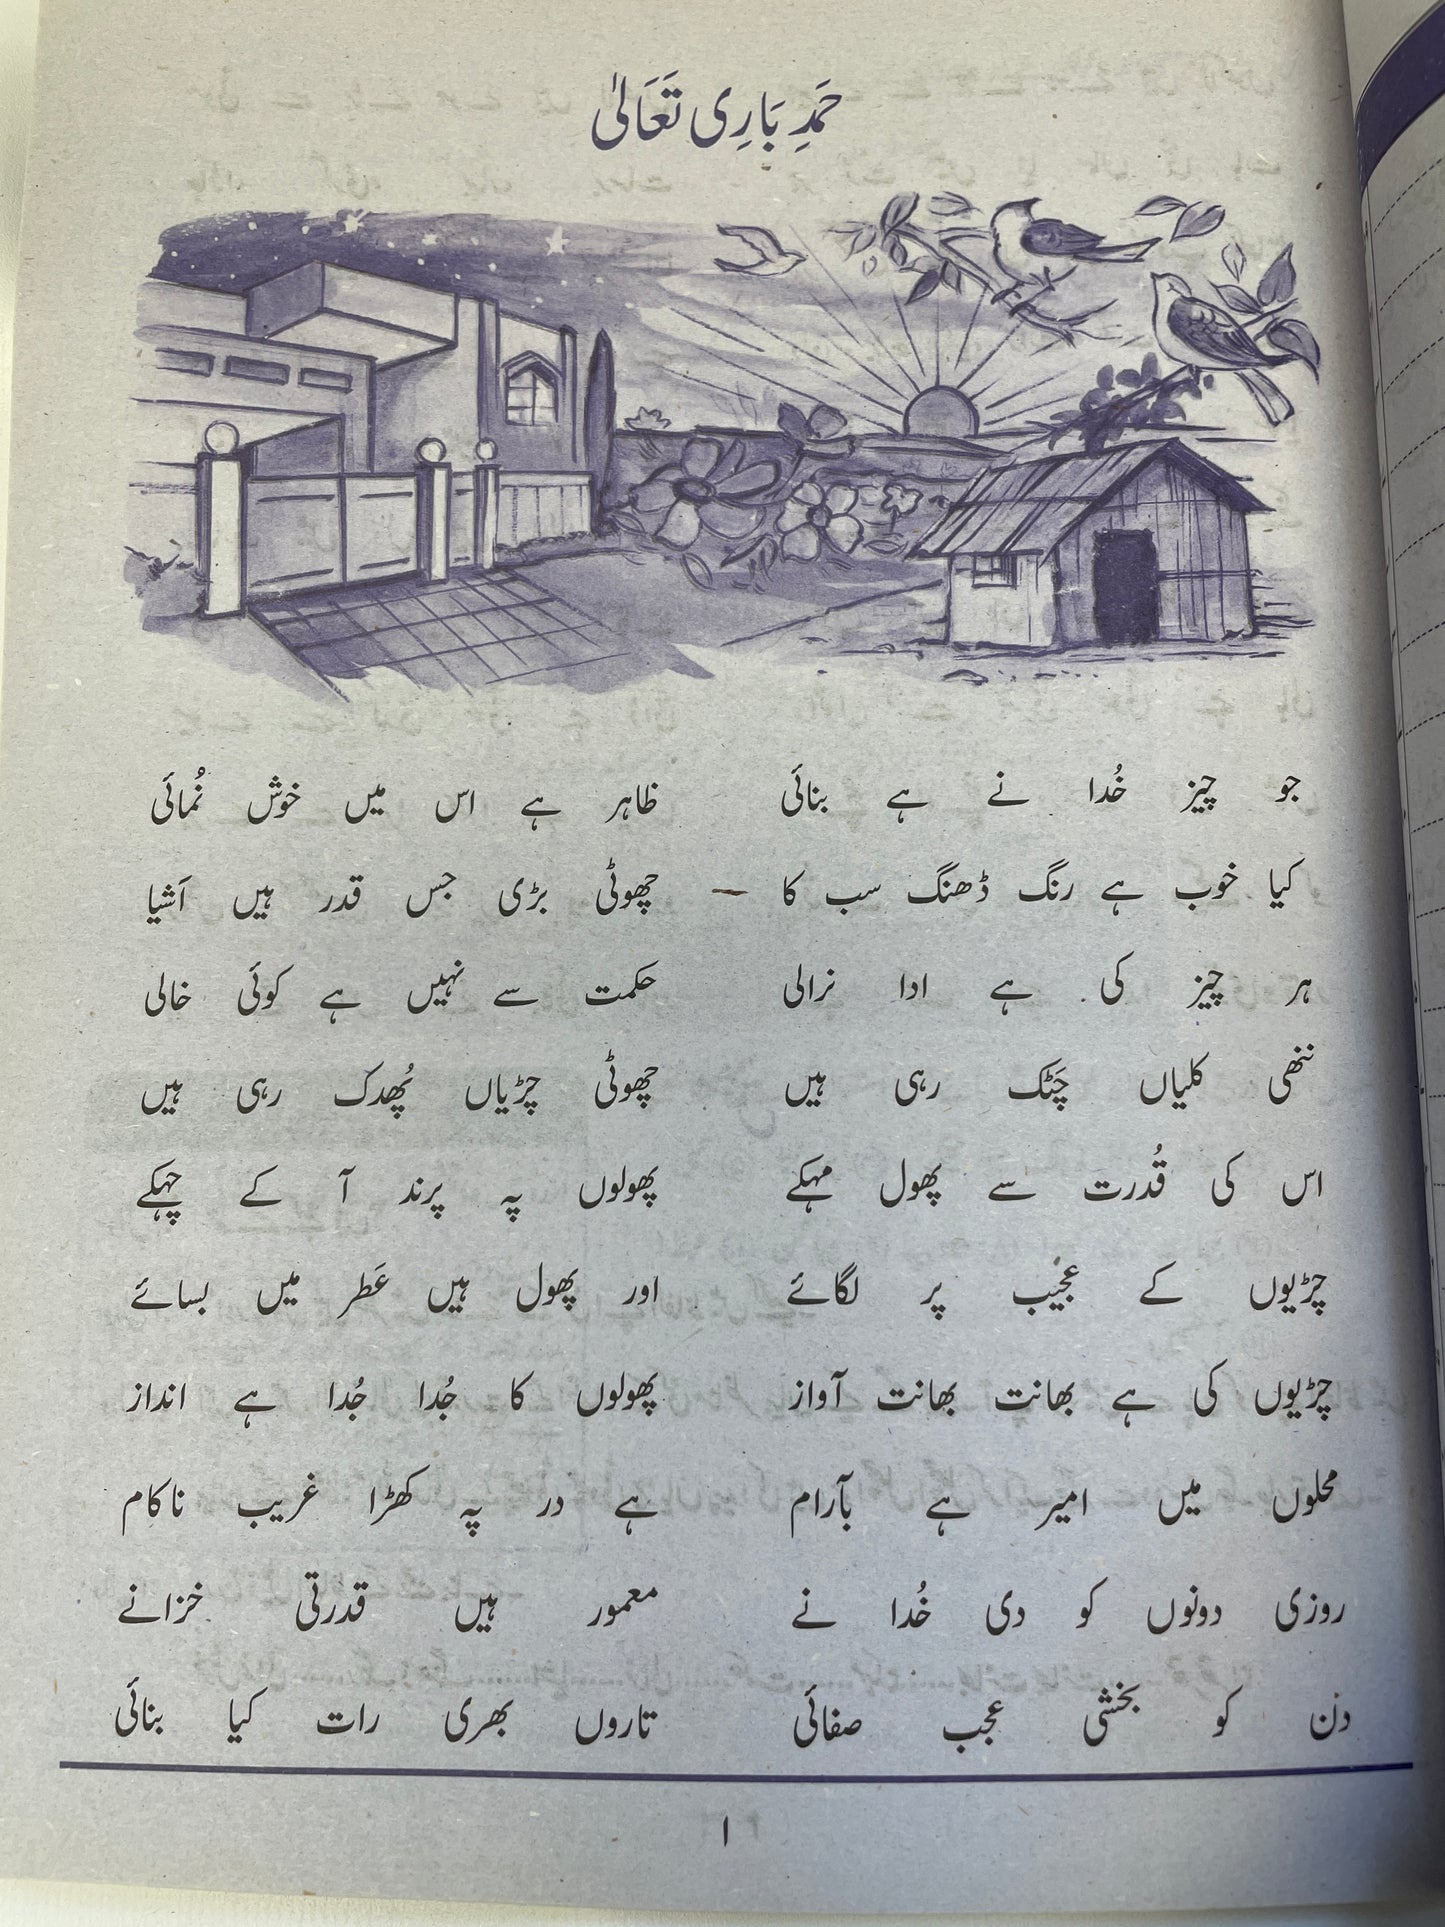 حَمدِ بَارِی تَعَالیٰ
جو چیز خُدا نے ہے بنائی ظاہر ہے اس میں خوش نُمائی
کیا خوب ہے رنگ ڈھنگ سب کا چھوٹی بڑی جس قدر ہیں اَشیا
ہر چیز کی ہے ادا نرالی حکمت سے نہیں ہے کوئی خالی
ننھی کلیاں چَٹک رہی ہیں چھوٹی چڑیاں پُھدک رہی ہیں
اس کی قُدرت سے پھول مہکے پھولوں پہ پرند آ کے چہکے
چڑیوں کے عجیب پر لگائے اور پھول ہیں عَطر میں بسائے
چڑیوں کی ہے بھانت بھانت آواز پھولوں کا جُدا جُدا ہے انداز
محلوں میں امیر ہے بآرام ہے در پہ کھڑا غریب ناکام
روزی دونوں کو دی خُدا نے معمور ہیں قدرتی خزانے
دن کو بخشی عجب صفائی تاروں بھری رات کیا بنائی
۱